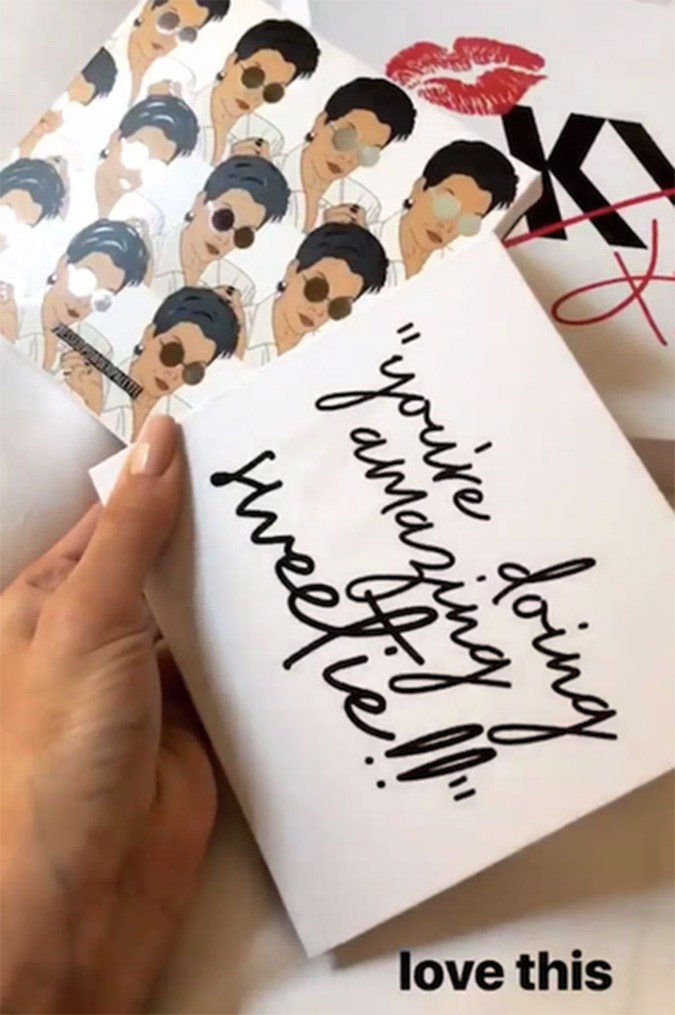 KY
"you're doing
amazing
sweetie!!"
love this